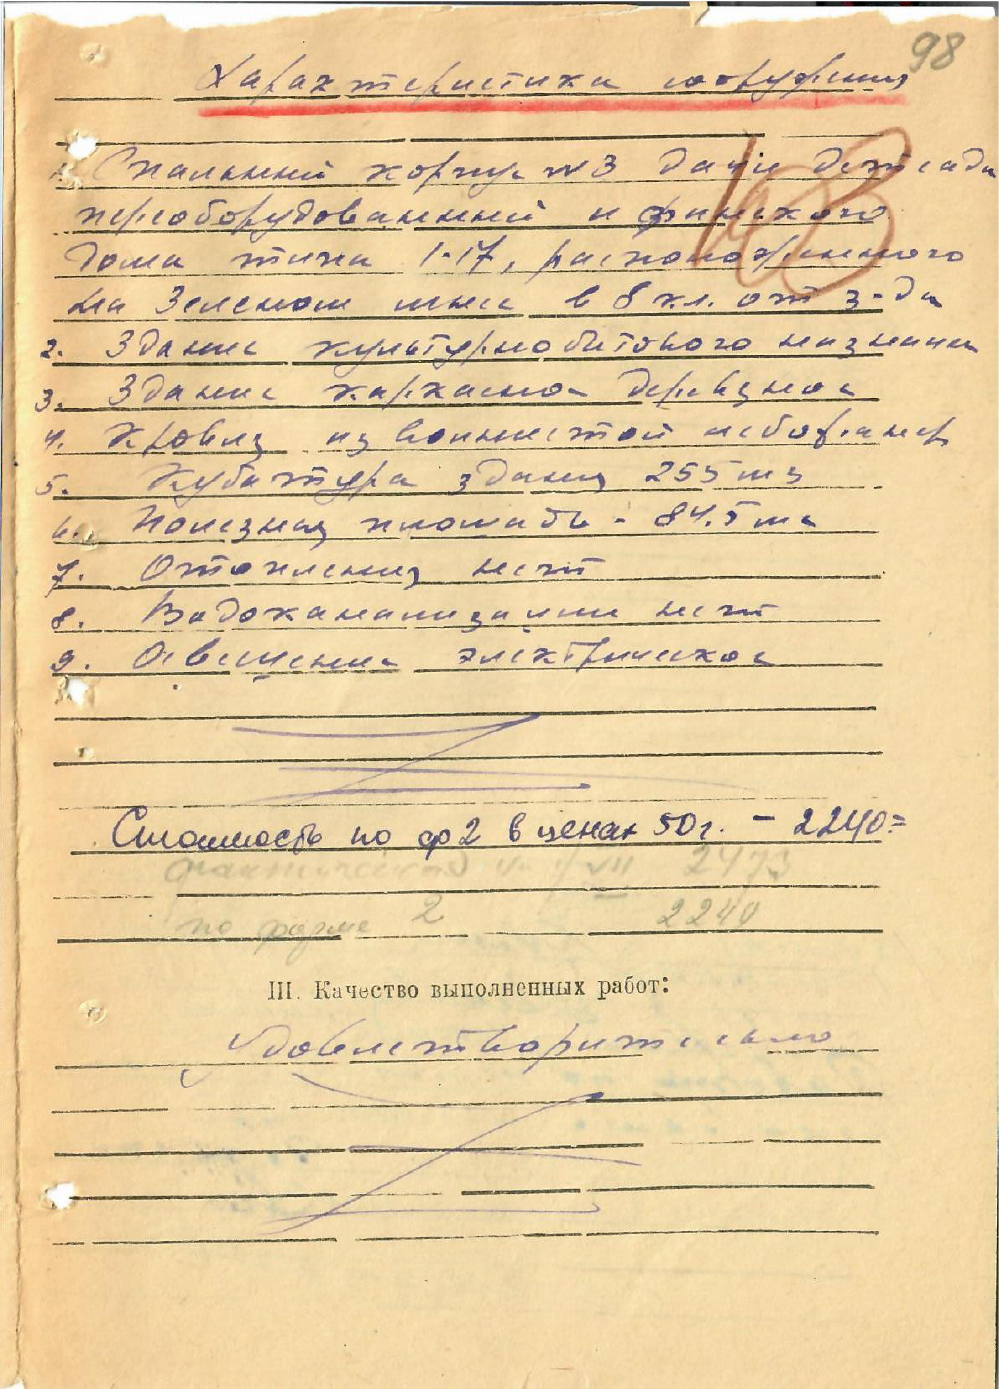 98
Характеристика сооружения
103
1. Спальный корпус №3 дачи детсада
переоборудованный и финского
дома типа 1-17, расположенного
на Зеленом мысе в 8 кл. от з-да
2. Здание культурнобытового назначен
3. Здание каркасное деревянное
4. Кровля из волнистой асбофанер
5. Кубатура здания 255 м3
6. Полезная площадь - 84.5 м2
7. Отопления нет
8. Водоканализации нет
9. Освещение электрическое
Стоимость по ф2 в ценах 50г. - 2240=
фактической VII 2473
по форме 2 2240
III. Качество выполненных работ:
Удовлетворительно